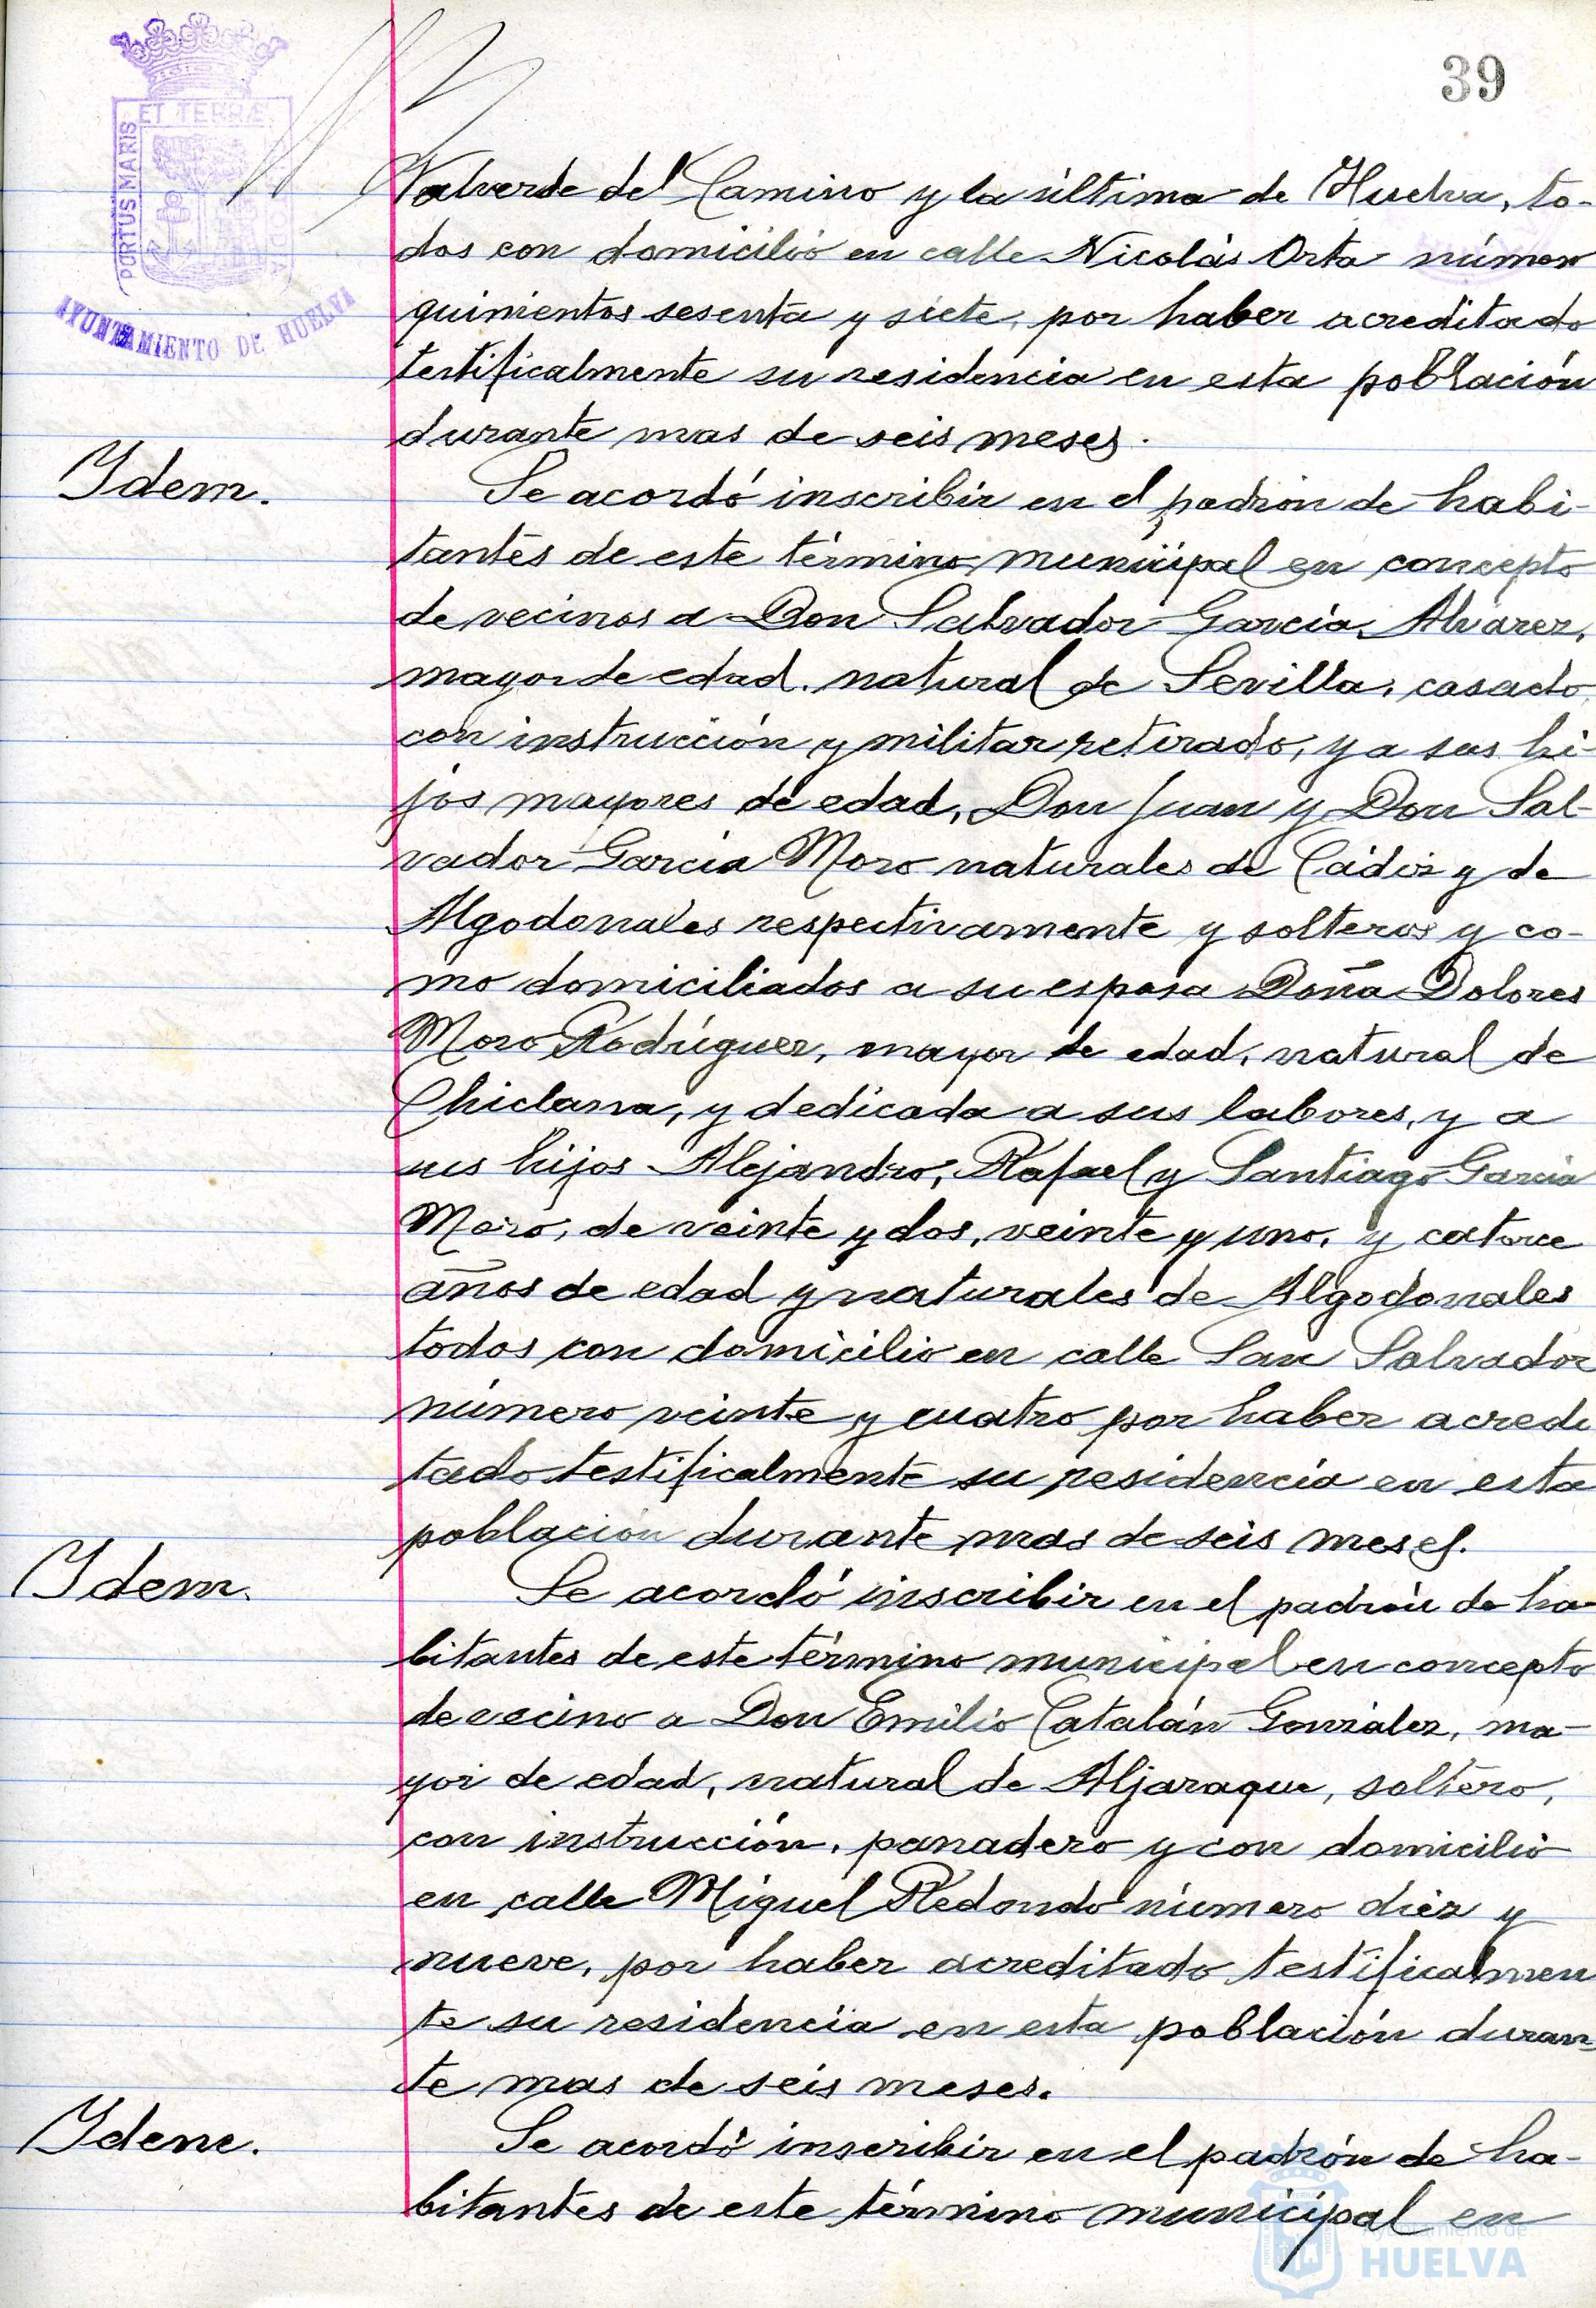 39
ET TERRÆ
PORTUS MARIS
AYUNTAMIENTO DE HUELVA
Valverde del Camino y la última de Huelva, to-
dos con domicilio en calle Nicolás Orta número
quinientos sesenta y siete, por haber acreditado
testificalmente su residencia en esta población
durante mas de seis meses.
Idem.
Se acordó inscribir en el padrón de habi-
tantes de este término municipal en concepto
de vecinos a Don Salvador García Alvarez,
mayor de edad, natural de Sevilla, casado,
con instrucción y militar retirado, y a sus hi-
jos mayores de edad, Don Juan y Don Sal-
vador García Moro naturales de Cádiz y de
Algodonales respectivamente y solteros y co-
mo domiciliados a su esposa Doña Dolores
Moro Rodríguez, mayor de edad, natural de
Chiclana, y dedicada a sus labores, y a
sus hijos Alejandro, Rafael y Santiago García
Moro, de veinte y dos, veinte y uno, y catorce
años de edad y naturales de Algodonales
todos con domicilio en calle San Salvador
número veinte y cuatro por haber acredi
tado testificalmente su residencia en esta
población durante mas de seis meses.
Idem.
Se acordó inscribir en el padrón de ha-
bitantes de este término municipal en concepto
de vecino a Don Emilio Catalán González, ma-
yor de edad, natural de Aljaraque, soltero,
con instrucción, panadero y con domicilio
en calle Miguel Redondo número diez y
nueve, por haber acreditado testificalmen
te su residencia en esta población duran-
te mas de seis meses.
Idem.
Se acordó inscribir en el padrón de ha-
bitantes de este término municipal en
Ayuntamiento de
HUELVA